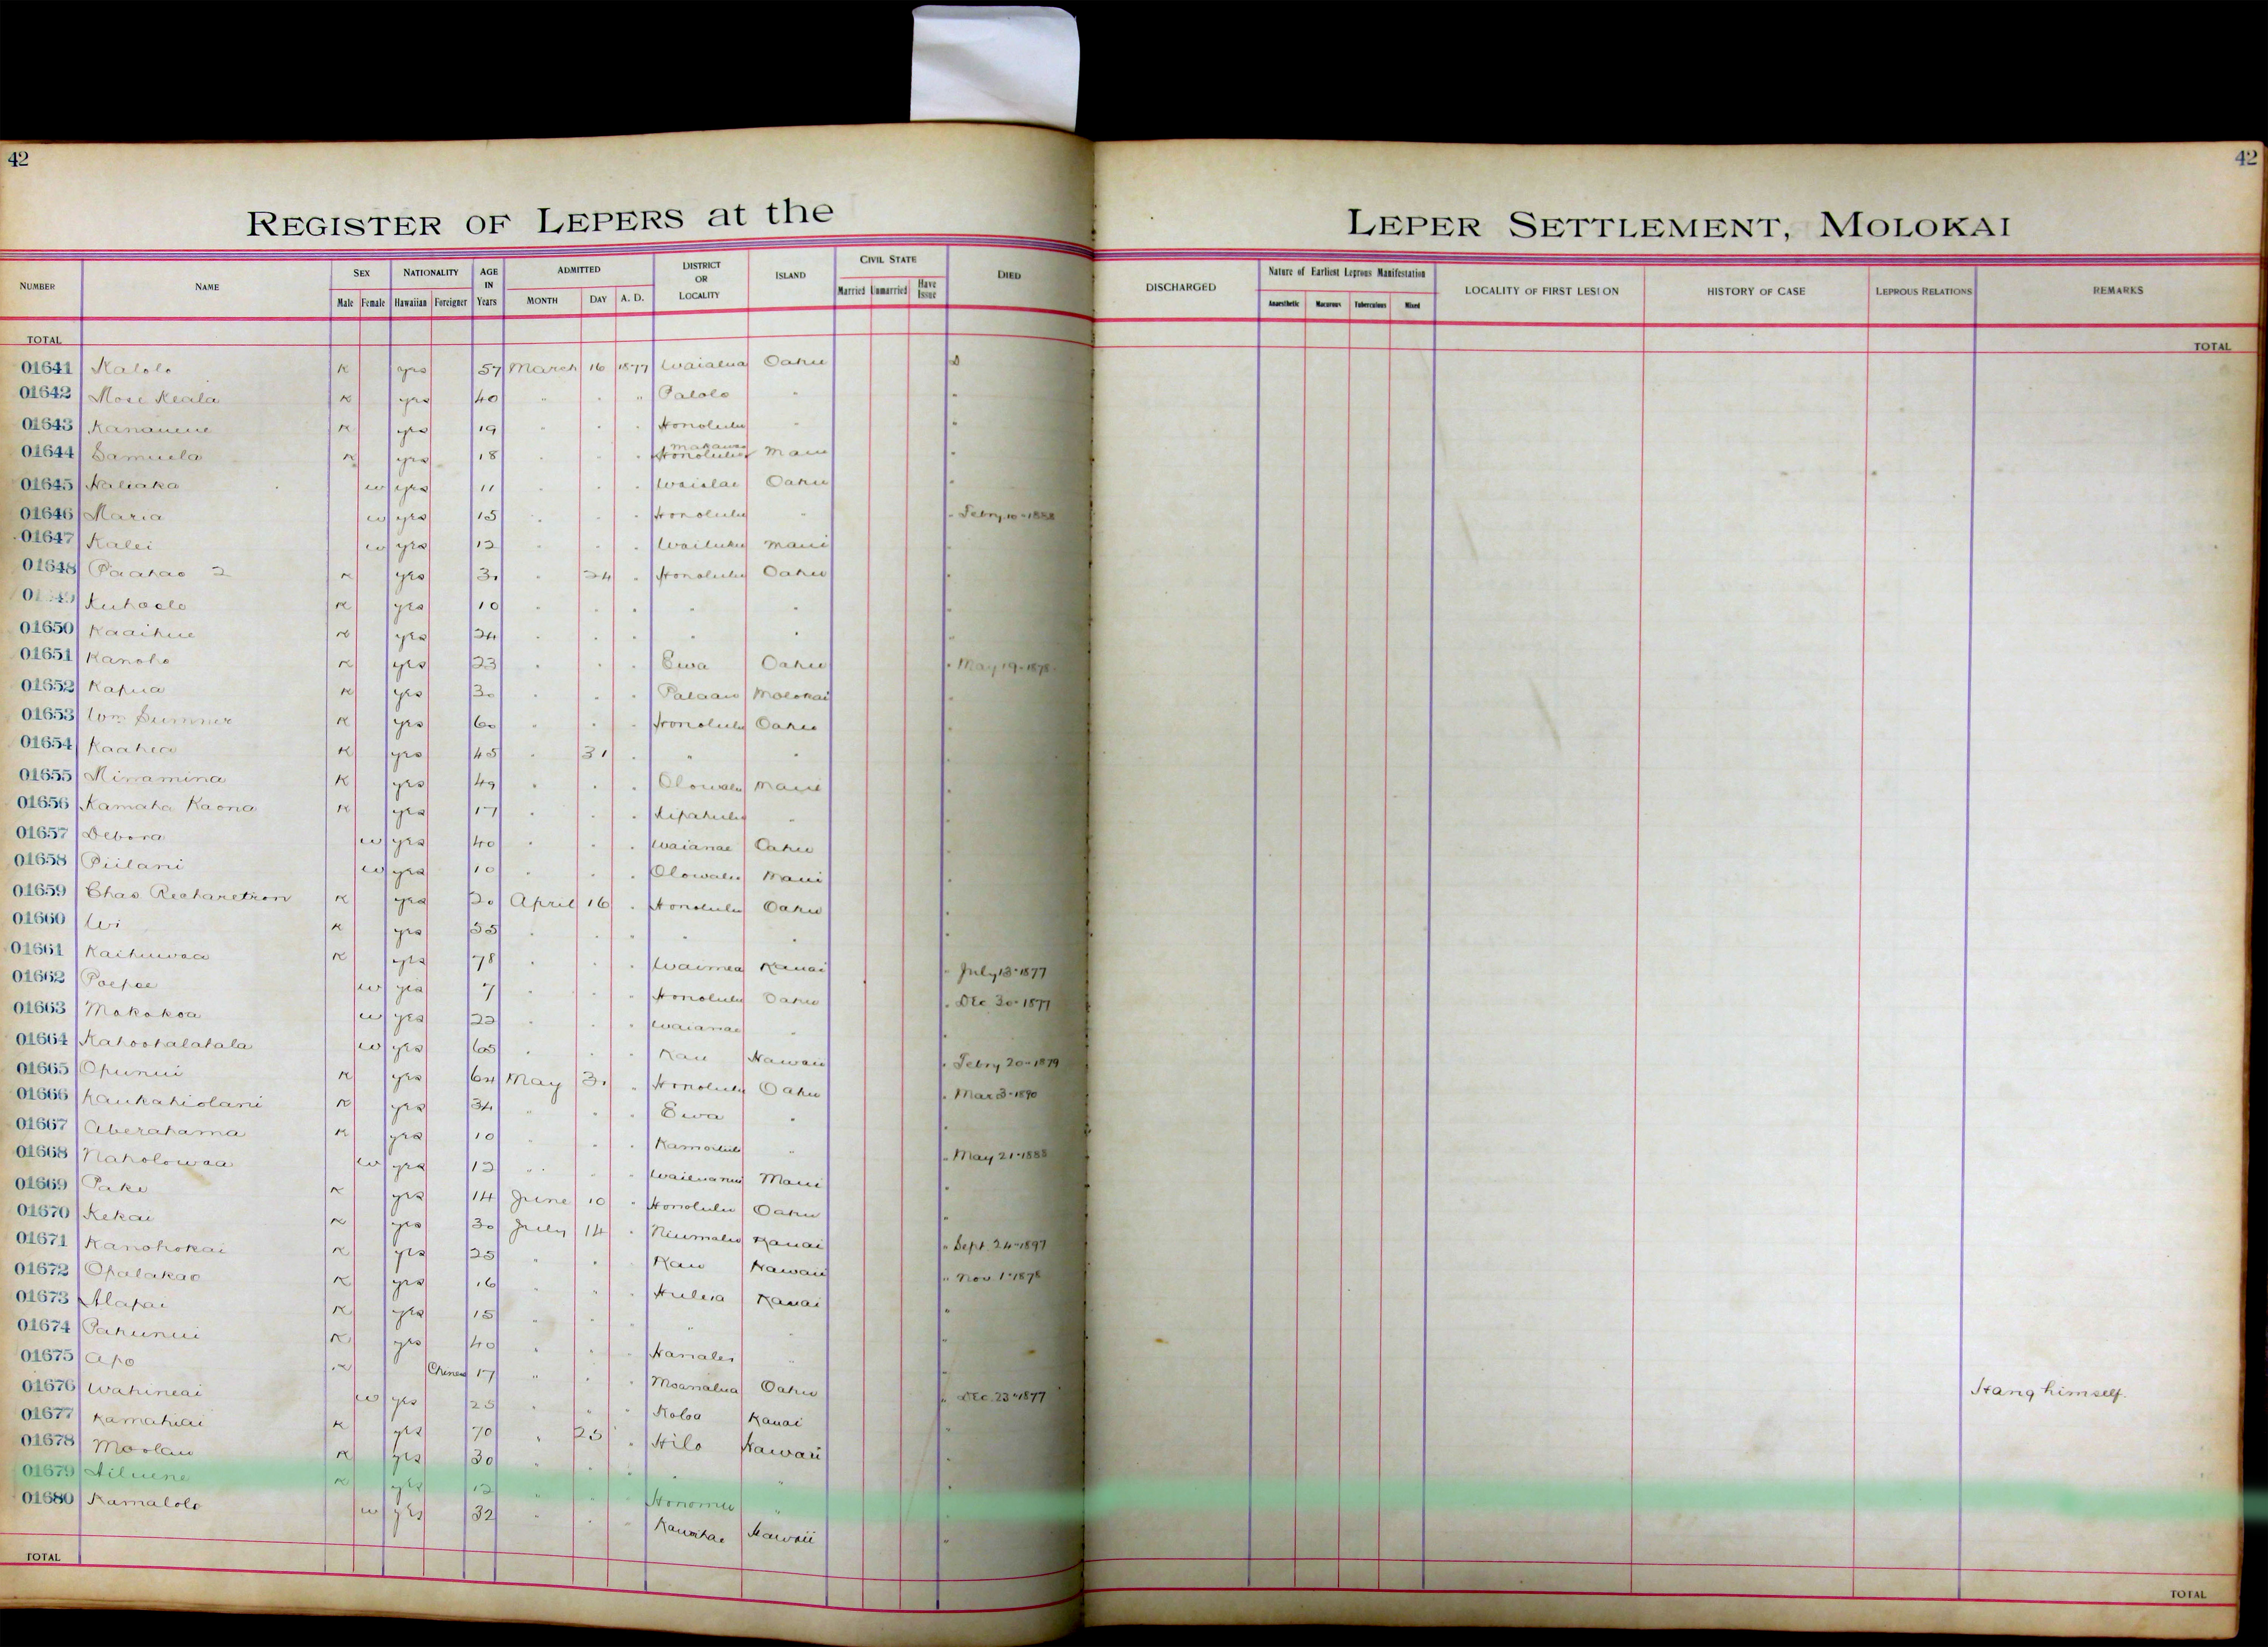 42
42
REGISTER OF LEPERS at the LEPER SETTLEMENT, MOLOKAI
NUMBER NAME SEX NATIONALITY AGE IN Years ADMITTED DISTRICT OR LOCALITY ISLAND CIVIL STATE DIED DISCHARGED Nature of Earliest Leprous Manifestation LOCALITY OF FIRST LESION HISTORY OF CASE LEPROUS RELATIONS REMARKS
Male Female Hawaiian Foreigner MONTH DAY A. D. Married Unmarried Have Issue Anaesthetic Macurous Tuberculous Mixed
TOTAL TOTAL
01641 Kalolo K yes 57 March 16 1877 Waialua Oahu D
01642 Mose Keala K yes 40 " " " Palolo " "
01643 Kananuene K yes 19 " " " Honolulu " "
01644 Samuela K yes 18 " " " Makawao Honolulu Maui "
01645 Haliaka w yes 11 " " " Waialae Oahu "
01646 Maria w yes 15 " " " Honolulu " " Febry 10-1888
01647 Kalei w yes 12 " " " Wailuku Maui "
01648 Paahao 2 K yes 30 " 24 " Honolulu Oahu "
Kuhaelo K yes 10 " " " " " "
01650 Kaaihue K yes 24 " " " " " "
01651 Kanoho K yes 23 " " " Ewa Oahu " May 19-1878
01652 Kapua K yes 30 " " " Palaau Molokai "
01653 Wm Sumner K yes 60 " " " Honolulu Oahu "
01654 Kaahea K yes 45 " 31 " " " "
01655 Minamina K yes 49 " " " Olowalu Maui "
01656 Kamaha Kaona K yes 17 " " " Kipahulu " "
01657 Debora w yes 40 " " " Waianae Oahu "
01658 Piilani w yes 10 " " " Olowalu Maui "
01659 Chas Richaretson K yes 20 April 16 " Honolulu Oahu "
01660 Wi K yes 35 " " " " " "
01661 Kaihuwaa K yes 78 " " " Waimea Kauai " July 13-1877
01662 Poepoe w yes 7 " " " Honolulu Oahu " Dec 30-1877
01663 Makakoa w yes 22 " " " Waianae " "
01664 Kahoohalahala w yes 65 " " " Kau Hawaii " Febry 20-1879
01665 Opunui K yes 64 May 31 " Honolulu Oahu " Mar 3-1890
01666 Kaukahiolani K yes 34 " " " Ewa " "
01667 Aberahama K yes 10 " " " Kamoiliili " " May 21-1888
01668 Naholowaa w yes 12 " " " Wailuanui Maui "
01669 Pake K yes 14 June 10 " Honolulu Oahu "
01670 Kekai K yes 30 July 14 " Niumalu Kauai " Sept. 24-1897
01671 Kanohokai K yes 25 " " " Kau Hawaii " Nov. 1-1878
01672 Opalakao K yes 16 " " " Huleia Kauai "
01673 Alapai K yes 15 " " " " " "
01674 Pahunui K yes 40 " " " Hanalei " "
01675 Apo K Chinese 17 " " " Moanalua Oahu " Dec. 23-1877 Hang himself.
01676 Wahineai w yes 25 " " " Koloa Kauai "
01677 Kamahiai K yes 70 " 25 " Hilo Hawaii "
01678 Moolau K yes 30 " " " " " "
01679 K yes 12 " " " Honomu " "
01680 Kamalolo w yes 32 " " " Kawaihae Hawaii "
TOTAL TOTAL